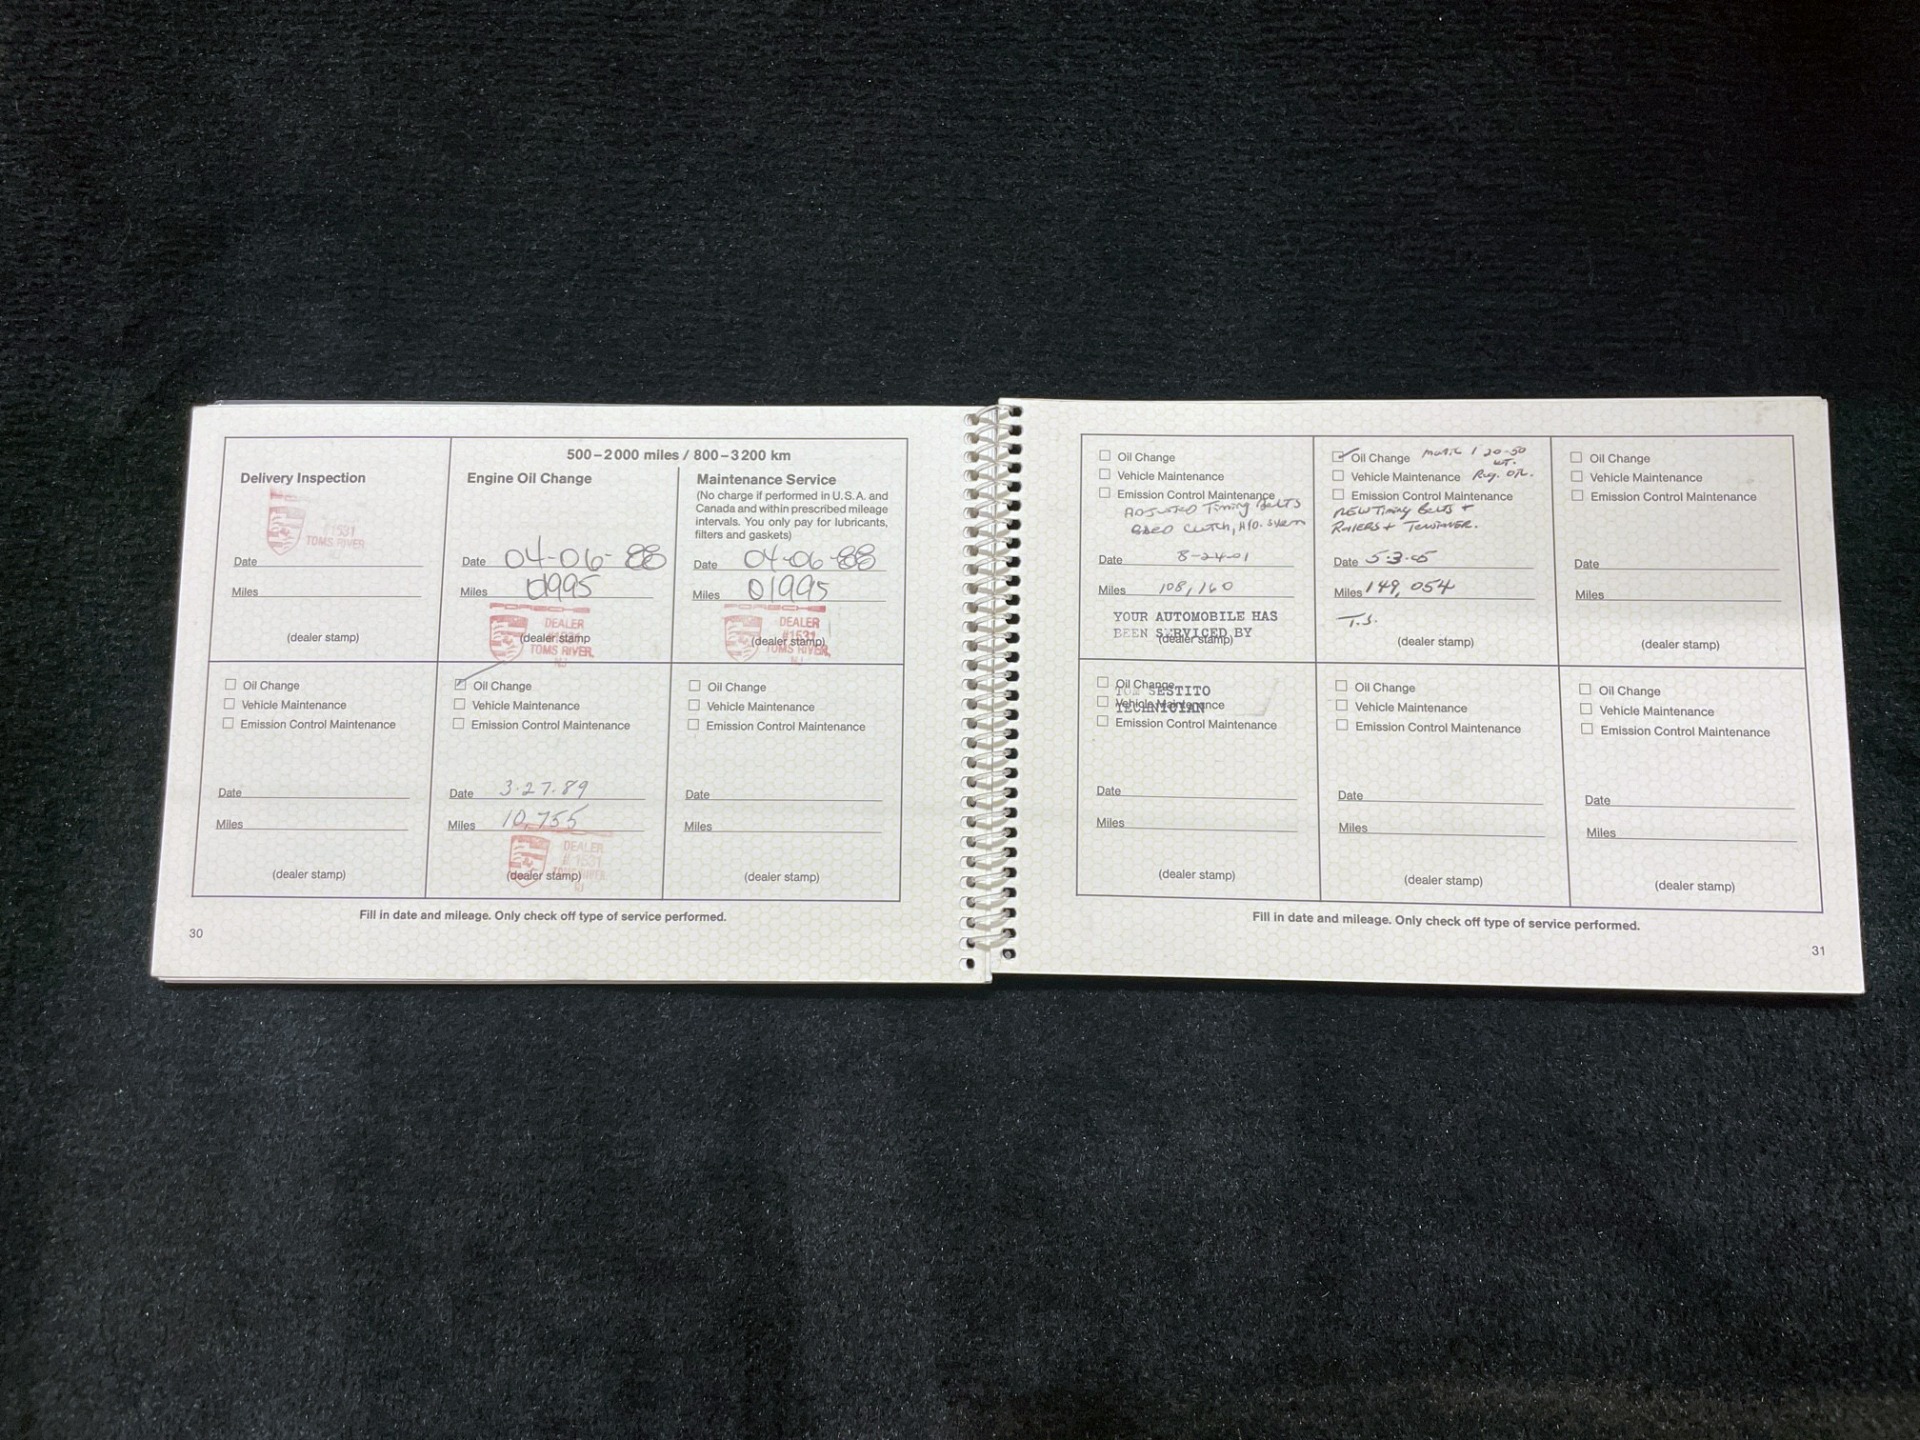 Delivery Inspection
#1531
TOMS RIVER
NJ
Date
Miles
(dealer stamp)
500–2000 miles / 800–3200 km
Engine Oil Change
Date 04-06-88
Miles 01995
DEALER
TOMS RIVER,
NJ
(dealer stamp
Maintenance Service
(No charge if performed in U.S.A. and
Canada and within prescribed mileage
intervals. You only pay for lubricants,
filters and gaskets)
Date 04-06-88
Miles 01995
DEALER
#1531
TOMS RIVER,
NJ
(dealer stamp)
Oil Change
Vehicle Maintenance
Emission Control Maintenance
Date
Miles
(dealer stamp)
Oil Change
Vehicle Maintenance
Emission Control Maintenance
Date 3-27-89
Miles 10,755
DEALER
# 1531
NJ
(dealer stamp)
Oil Change
Vehicle Maintenance
Emission Control Maintenance
Date
Miles
(dealer stamp)
Fill in date and mileage. Only check off type of service performed.
30
Oil Change
Vehicle Maintenance
Emission Control Maintenance
ADJUSTED Timing Belts
Clutch, HYD. System
Date 8-24-01
Miles 108,160
YOUR AUTOMOBILE HAS
BEEN SERVICED BY
(dealer stamp)
Oil Change Mobil 1 20-50
wt.
Vehicle Maintenance Reg. OIL.
Emission Control Maintenance
NEW Timing Belts +
Rollers + Tensioner.
Date 5-3-05
Miles 149,054
T.S.
(dealer stamp)
Oil Change
Vehicle Maintenance
Emission Control Maintenance
Date
Miles
(dealer stamp)
Oil Change
TOM SESTITO
Vehicle Maintenance
TECHNICIAN
Emission Control Maintenance
Date
Miles
(dealer stamp)
Oil Change
Vehicle Maintenance
Emission Control Maintenance
Date
Miles
(dealer stamp)
Oil Change
Vehicle Maintenance
Emission Control Maintenance
Date
Miles
(dealer stamp)
Fill in date and mileage. Only check off type of service performed.
31